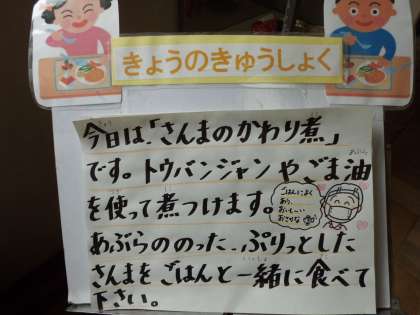 きょうのきゅうしょく
今日は、「さんまのかわり煮」
です。トウバンジャンやごま油
を使って煮つけます。
ごはんによく
あう、
おいしい
おさかな
あぶらののった、ぷりっとした
さんまをごはんと一緒に食べて
下さい。